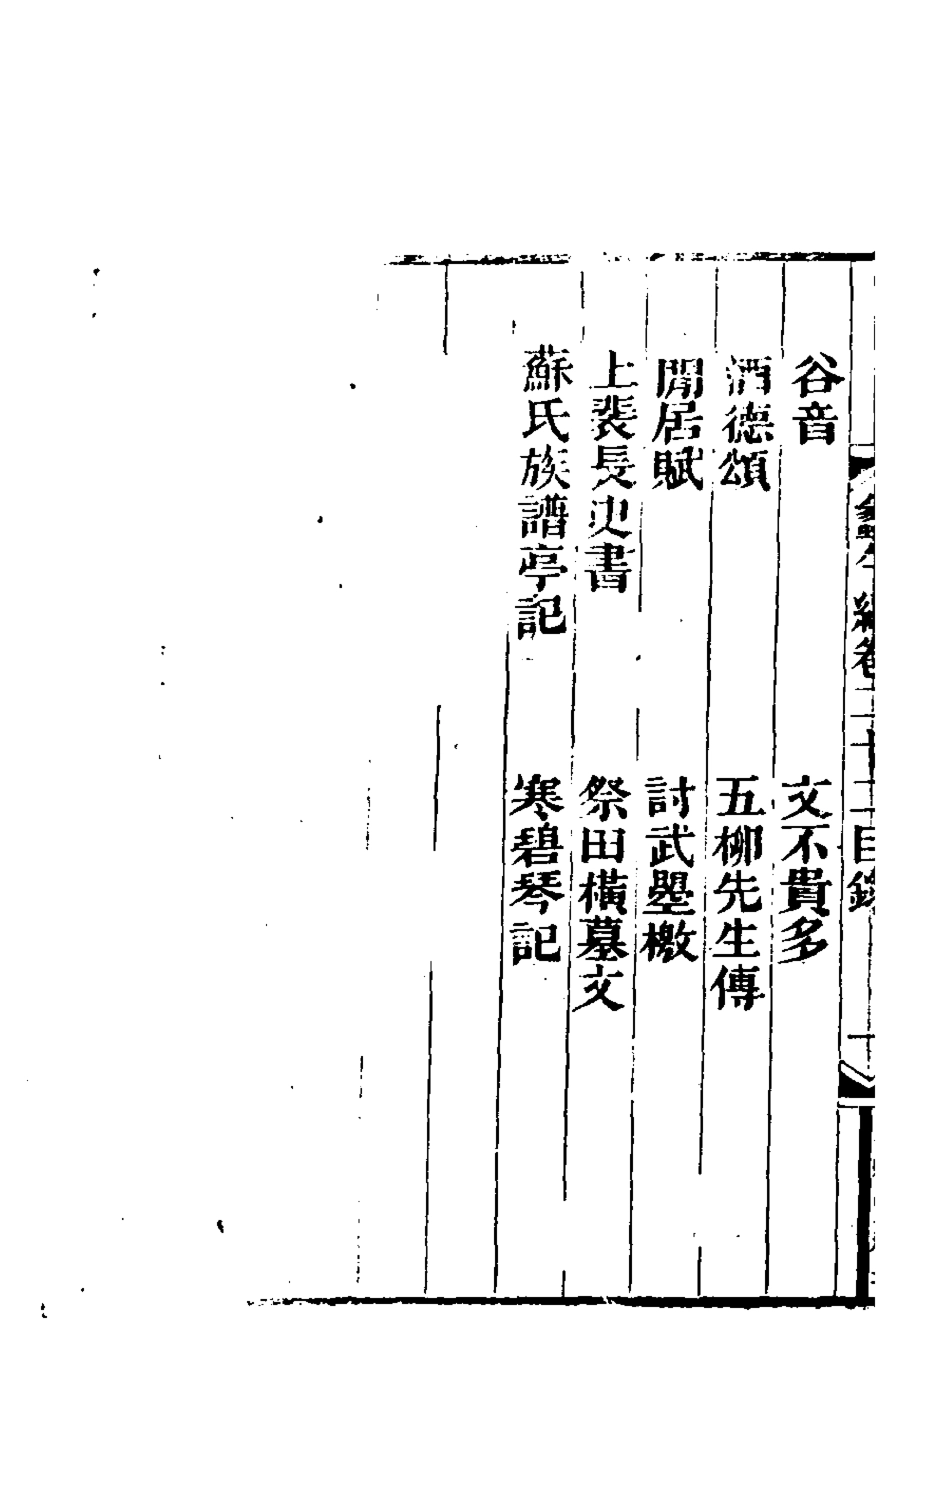 蠡勺編卷二十二目錄
谷音　文不貴多
酒德頌　五柳先生傳
閒居賦　討武曌檄
上裴長史書　祭田橫墓文
蘇氏族譜亭記　寒碧琴記